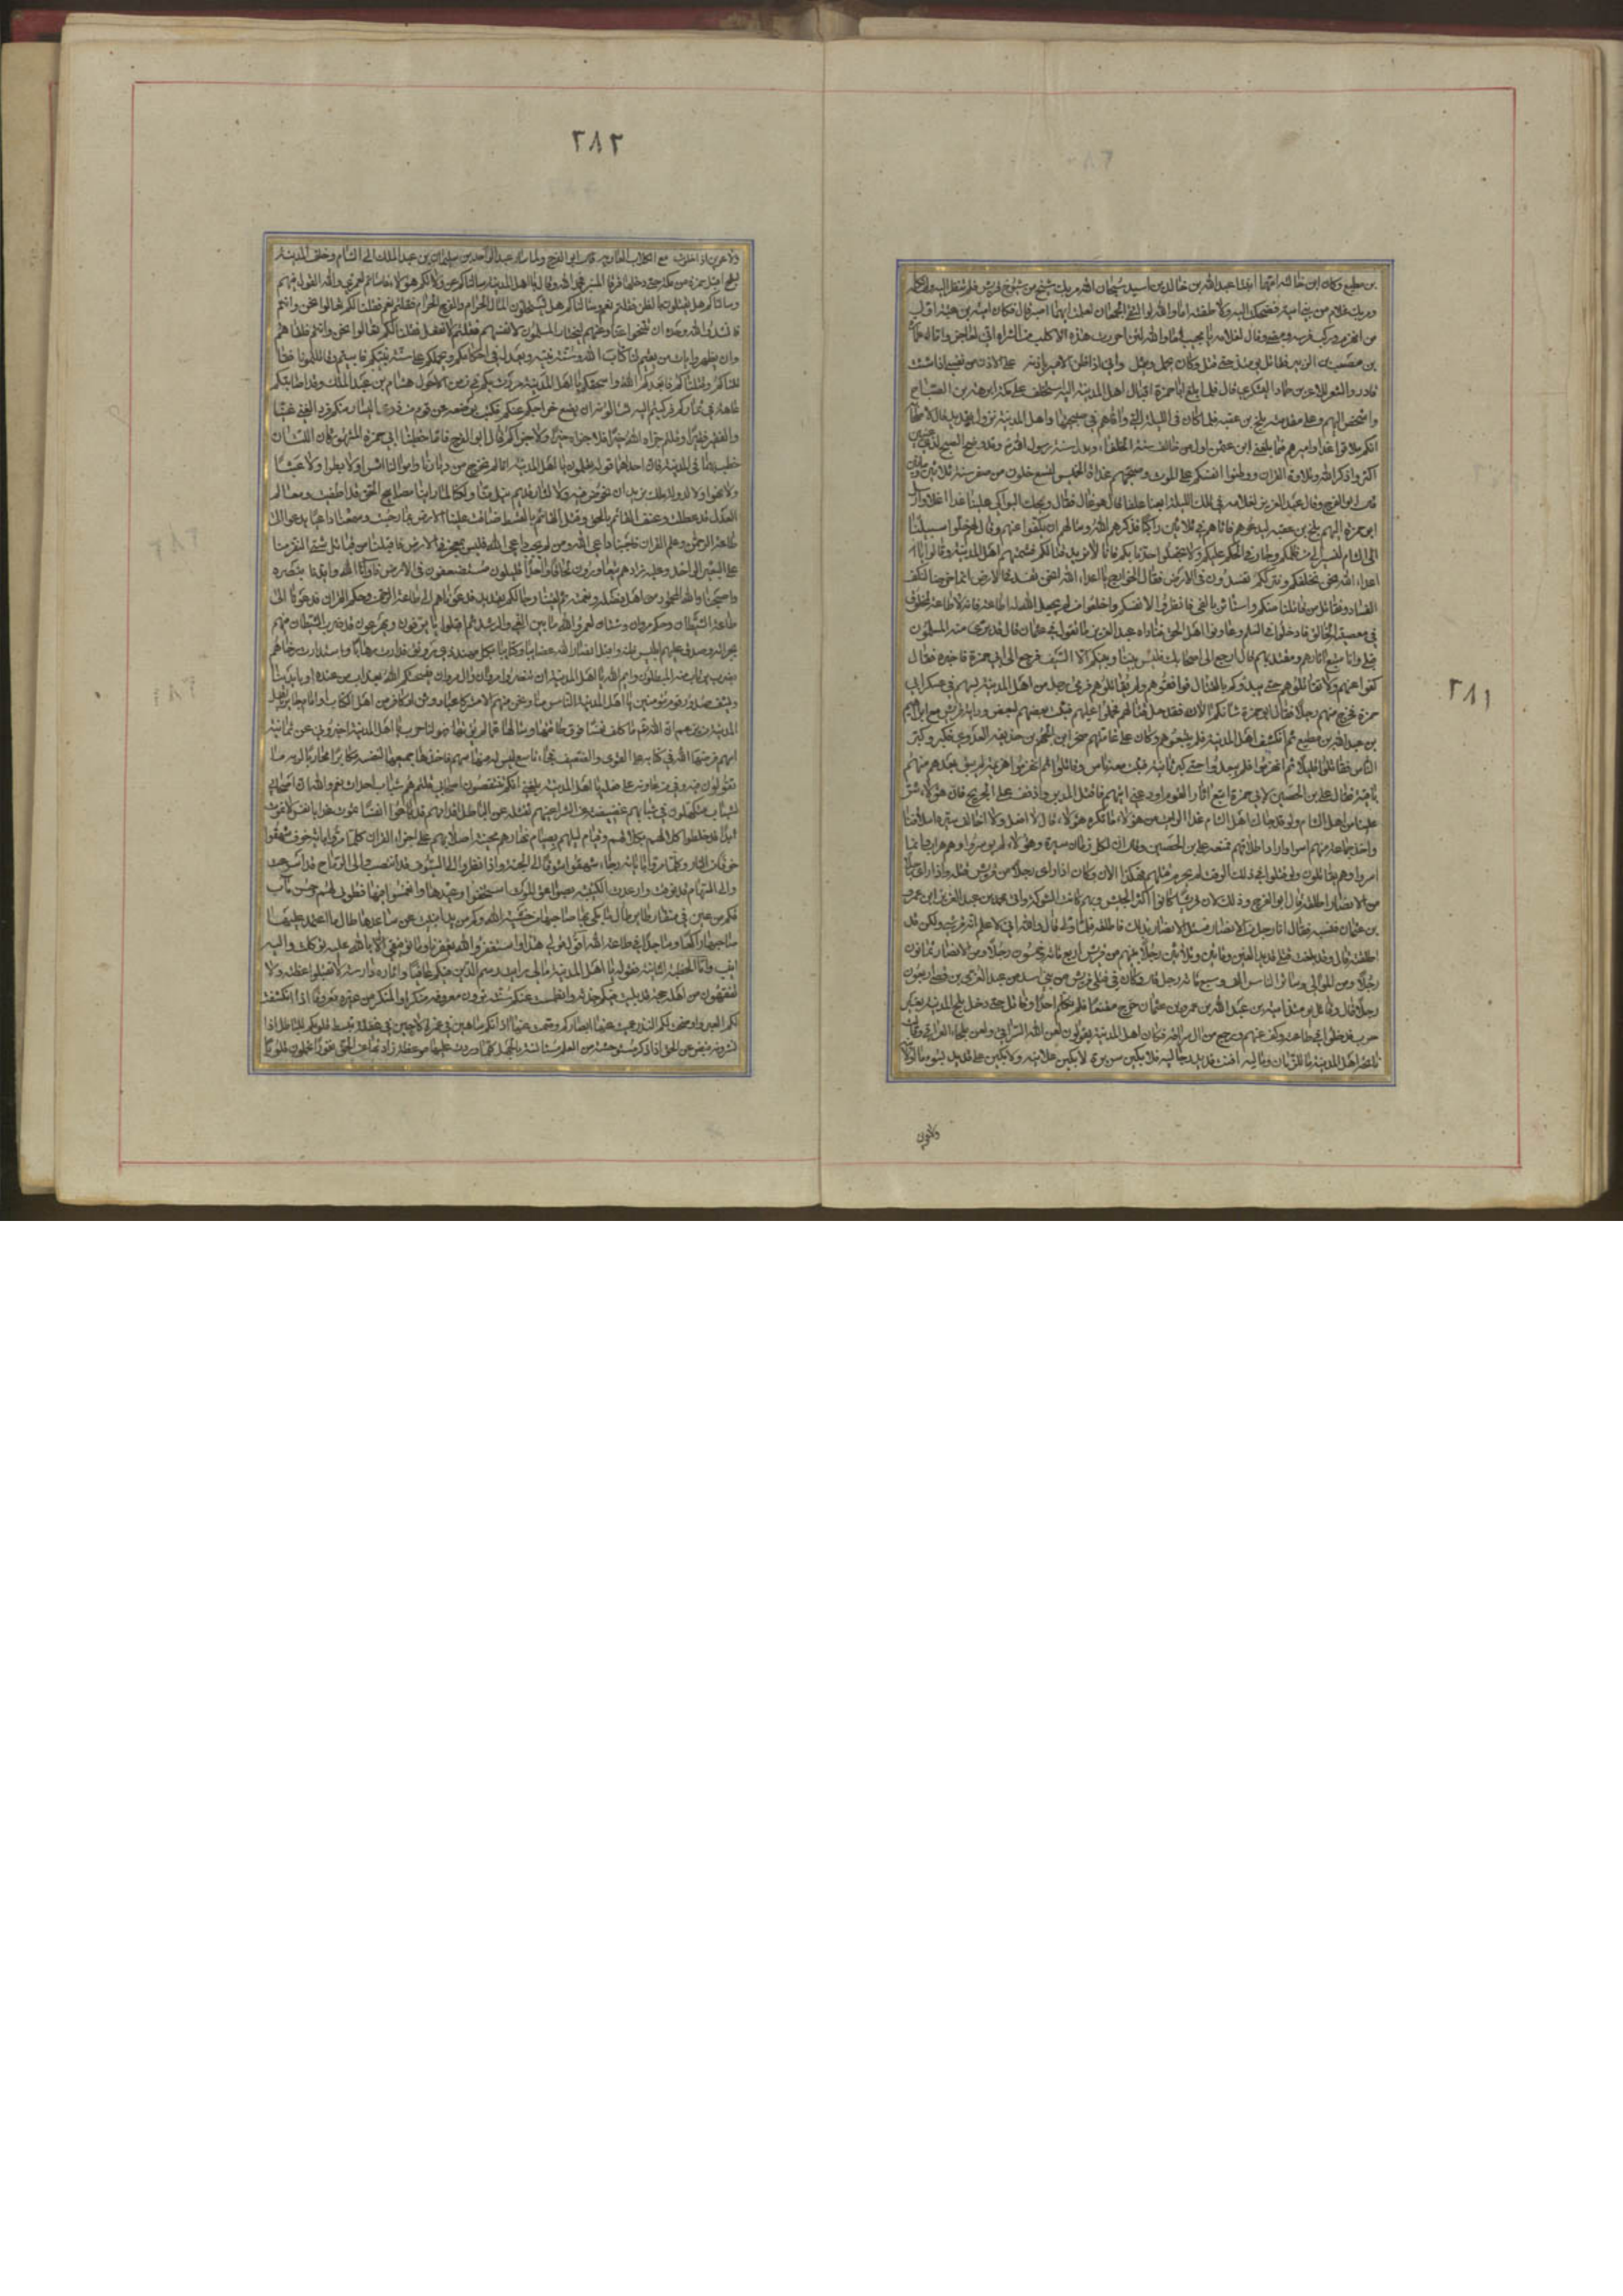 ٢٨١
بن مطيع وكان ابن خالته امهما ابنتا عبدالله بن خالد بن اسيد سبحان الله مر بك شيخ من شيوخ قريش فلم تنظر اليه ولم تكلمه
ومر بك غلام من بني امية فضحكت اليه ولاطفته اما والله لو التقى الجمعان لعلمت ايهما اصبر قال فكان امية بن عنبسة اول
من انهزم وركب فرسه ومضى وقال لغلامه يا مجيب اما والله لئن احرزت هذه الاكلب من الشراة اني لعاجز
بن مصعب بن الزبير فقاتل يومئذ حتى قتل وكان يحمل ويتمثل واني اذا ضن الامير باذنه على الاذن من نفسي اذا شئت
قادر والشعر للاغر بن حماد اليشكري قال فلما بلغ ابا حمزة اقبال اهل المدينة اليه استخلف على مكة ابرهة بن الصباح
وشخص اليهم وعلى مقدمته بلج بن عقبة فلما كان في الليلة التي وافاهم في صبيحتها واهل المدينة نزول بقديد قال لاصحابه
انكم ملاقوا غدا واميرهم فيما بلغني ابن عثمن اول من خالف سنة الخلفاء وبدل سنة رسول الله وقد وضح الصبح لذي عينين
اكثروا ذكر الله وتلاوة القران ووطنوا انفسكم على الموت وصبحهم غداة الخميس لتسع خلون من صفر سنة ثلاثين ومائة
قال ابو الفرج وقال عبد العزيز لغلامه في تلك الليلة ابغنا علفا قال هو غال فقال ويحك البواكي علينا غدا اغلا وارسل
ابو حمزة اليهم بلج بن عقبة ليدعوهم فاتاهم في ثلاثين راكبا فذكرهم الله وسالهم ان يكفوا عنهم وقال لهم خلوا سبيلنا
الى الشام لنسير الى من ظلمكم وجار في الحكم عليكم ولا تجعلوا حدنا بكم فانا لا نريد قتالكم فشتمهم اهل المدينة وقالوا يا
اعداء الله نحن نخليكم ونترككم تفسدون في الارض فقال الخوارج يا اعداء الله انحن نفسد في الارض انما خرجنا لنكف
الفساد ونقاتل من قاتلنا منكم واستاثر بالفي فانظروا لانفسكم واخلعوا من لم يجعل الله له طاعة فانه لا طاعة لمخلوق
في معصية الخالق فادخلوا في السلم وعاونوا اهل الحق فناداه عبد العزيز ما تقول في عثمان قال قد برئ منه المسلمون
قبلي وانا متبع اثارهم ومقتد بهم قال ارجع الى اصحابك فليس بيننا وبينكم الا السيف فرجع الى ابي حمزة فاخبره فقال
كفوا عنهم ولا تقاتلوهم حتى يبدؤكم بالقتال فواقفوهم ولم يقاتلوهم فرمى رجل من اهل المدينة بسهم في عسكر ابي
حمزة فجرح منهم رجلا فقال ابو حمزة شانكم الان فقد حل قتالهم فحملوا عليهم فثبت بعضهم لبعض وراية قريش مع ابراهيم
بن عبدالله بن مطيع ثم انكشف اهل المدينة فلم يتبعوهم وكان على عامتهم صخر ابن الجهم بن حذيفة العدوي فكبر وكبر
الناس فقاتلوا قليلا ثم انهزموا فلم يبعدوا حتى كبر ثانية فثبت معه ناس وقاتلوا ثم انهزموا هزيمة لم تبق بعدهم منهم
باقية فقال علي بن الحصين لابي حمزة اتبع اثار القوم او دعني اتبعهم فاقتل المدبر واذفف على الجريح فان هؤلاء شر
علينا من اهل الشام ولو قد جاءك اهل الشام غدا لرايت من هؤلاء ما تكره قال لا افعل ولا اخالف سيرة اسلافنا
واخذ جماعة منهم اسرا واراد اطلاقهم فمنعه علي بن الحصين وقال ان لكل زمان سيرة وهؤلاء لم يوسروا وهم هراب وانما
اسروا وهم يقاتلون ولو قتلوا في ذلك الوقت لم يحرم قتلهم فهكذا الان وكان اذا راى رجلا من قريش قتله واذا راى رجلا
من الانصار اطلقه قال ابو الفرج وذلك لان قريشا كانوا اكثر الجيش وبهم كانت الشوكة واتى محمد بن عبد العزيز ابن عمرو
بن عثمان فنسبه فقال انا رجل من الانصار فسئل الانصار بذلك فاطلقه فلما ولى قال والله اني لاعلم انه قرشي ولكن قد
اطلقته قال وقد بلغت قتلى قديد الفين ومائتين وثلاثين رجلا منهم من قريش اربع مائة وخمسون رجلا ومن الانصار ثمانون
رجلا ومن الموالي وسائر الناس الف وسبع مائة رجل قال وكان في قتلى قريش من بني اسد بن عبد العزى بن قصي اربعون
رجلا قال وقتل يومئذ امية بن عبد الله بن عمرو بن عثمان خرج مقنعا فلم يكلم احدا وقاتل حتى قتل ودخل بلج المدينة بغير
حرب فدخلوا في طاعته وكف عنهم ورجع الى ملكه فكان اهل المدينة يقولون لعن الله السراقي ولعن بلجا العراقي وقالت
نائحة اهل المدينة ما للزمان وماليه افنت قديد رجاليه فلابكين سريرة ولابكين علانية ولابكين على قديد بسوء ما اولانيه
ولاعوين
٢٨٢
ولاعوين اذا خلوت مع الكلاب العاويه قال ابو الفرج ولما سار عبد الواحد بن سليمان بن عبد الملك الى الشام وخلف المدينة
لبلج اقبل ابو حمزة من مكة حتى دخلها فرقا المنبر فحمد الله وقال يا اهل المدينة سالناكم عن ولاتكم هؤلاء فاساتم لعمري والله القول فيهم
وسالناكم هل يقتلون بالظن فقلتم نعم وسالناكم هل يستحلون المال الحرام والفرج الحرام فقلتم نعم فقلنا لكم تعالوا نحن وانتم
فانشدوا الله وحده ان يتنحوا عنا وعنكم ليختار المسلمون لانفسهم فقلتم لا نفعل فقلنا لكم تعالوا نحن وانتم نلقاهم
فان نظهر نحن وانتم نات بمن يقيم لنا كتاب الله وسنة نبيه ويعدل في احكامكم ويحملكم على سنة نبيكم فابيتم وقاتلتمونا
فقاتلناكم وقتلناكم فابعدكم الله واسحقكم يا اهل المدينة مررت بكم في زمن الاحول هشام بن عبد الملك وقد اصابتكم
عاهة في ثماركم فركبتم اليه تسالونه ان يضع خراجكم عنكم فكتب بوضعه عن قوم من ذوي اليسار منكم فزاد الغني غنيا
والفقير فقرا وقلتم جزاه الله خيرا فلا جزاه خيرا ولا جزاكم قال ابو الفرج فاما خطبتا ابي حمزة المشهورتان اللتان
خطب بهما في المدينة فان احداهما قوله تعلمون يا اهل المدينة انا لم نخرج من ديارنا واموالنا اشرا ولا بطرا ولا عبثا
ولا لهوا ولا لدولة ملك نريد ان نخوض فيه ولا لثار قديم نيل منا ولكنا لما راينا مصابيح الحق قد اطفئت ومعالم
العدل قد عطلت وعنف القائم بالحق وقتل القائم بالقسط ضاقت علينا الارض بما رحبت وسمعنا داعيا يدعو الى
طاعة الرحمن وحكم القران فاجبنا داعي الله ومن لم يجب داعي الله فليس بمعجز في الارض فاقبلنا من قبائل شتى النفر منا
على البعير الواحد وعليه زادهم يتعاورون لحافا واحدا قليلون مستضعفون في الارض فاوانا الله وايدنا بنصره
واصبحنا والله المحمود من اهل فضله ونعمته ثم لقينا رجالكم بقديد فدعوناهم الى طاعة الرحمن وحكم القران فدعونا الى
طاعة الشيطان وحكم مروان وشتان لعمرو الله ما بين الغي والرشد ثم اقبلوا يزفون ويهرعون قد ضرب الشيطان فيهم
بجرانه وصدق عليهم ابليس ظنه واقبل انصار الله عصايب وكتايب بكل مهند ذي رونق فدارت رحانا واستدارت رحاهم
بضرب يرتاب منه المبطلون وايم الله يا اهل المدينة ان تنصروا مروان وال مروان فيسحتكم الله بعذاب من عنده او بايدينا
ويشف صدور قوم مؤمنين يا اهل المدينة الناس منا ونحن منهم الا مشركا عابد وثن او كافر من اهل الكتاب او اماما جائرا يا اهل
المدينة من زعم ان الله كلف نفسا فوق طاقتها وسالها عما لم يؤتها فهو لنا حرب يا اهل المدينة اخبروني عن ثمانية
اسهم فرضها الله في كتابه على القوي والضعيف فجاء تاسع ليس له منها سهم فاخذها جميعها لنفسه مكابرا محاربا لربه ما
تقولون فيه وفيمن عاونه على فعله يا اهل المدينة بلغني انكم تنتقصون اصحابي قلتم هم شباب احداث نعم والله ان اصحابي
لشباب مكتهلون في شبابهم غضيضة عن الشر اعينهم ثقيلة عن الباطل اقدامهم قد باعوا انفسا تموت غدا بانفس لا تموت
ابدا قد خلطوا كلالهم بكلالهم وقيام ليلهم بصيام نهارهم محنية اصلابهم على اجزاء القران كلما مروا باية خوف شهقوا
خوفا من النار وكلما مروا باية رجاء شهقوا شوقا الى الجنة واذا نظروا الى السيوف قد انتضيت والى الرماح قد اشرعت
والى السهام قد فوقت وارعدت الكتيبة بصواعق الموت استخفوا وعيدها وانغمسوا فيها فطوبى لهم وحسن مآب
فكم من عين في منقار طاير طال ما بكى بها صاحبها من خشية الله وكم من يد ابينت عن ساعدها طال ما اعتمد عليها
صاحبها راكعا وساجدا في طاعة الله اقول قولي هذا واستغفر الله وما توفيقي الا بالله عليه توكلت واليه
انيب واما الخطبة الثانية فقوله يا اهل المدينة مالي رايت رسم الدين فيكم عافيا واثاره دارسة لا تقبلون عظة ولا
تفقهون من اهله حجة قد بليت فيكم جدته وانطمست عنكم سنته ترون معروفه منكرا والمنكر من غيره معروفا اذا انكشفت
لكم العبر واوضحت لكم النذر عميت عنها ابصاركم وصمت عنها اذانكم ساهين في غمرة لاهين في غفلة تنبسط قلوبكم للباطل اذا
نشر وتنقبض عن الحق اذا ذكر مستوحشة من العلم مستانسة بالجهل كلما وردت عليها موعظة زادتها عن الحق نفورا تحملون قلوبا